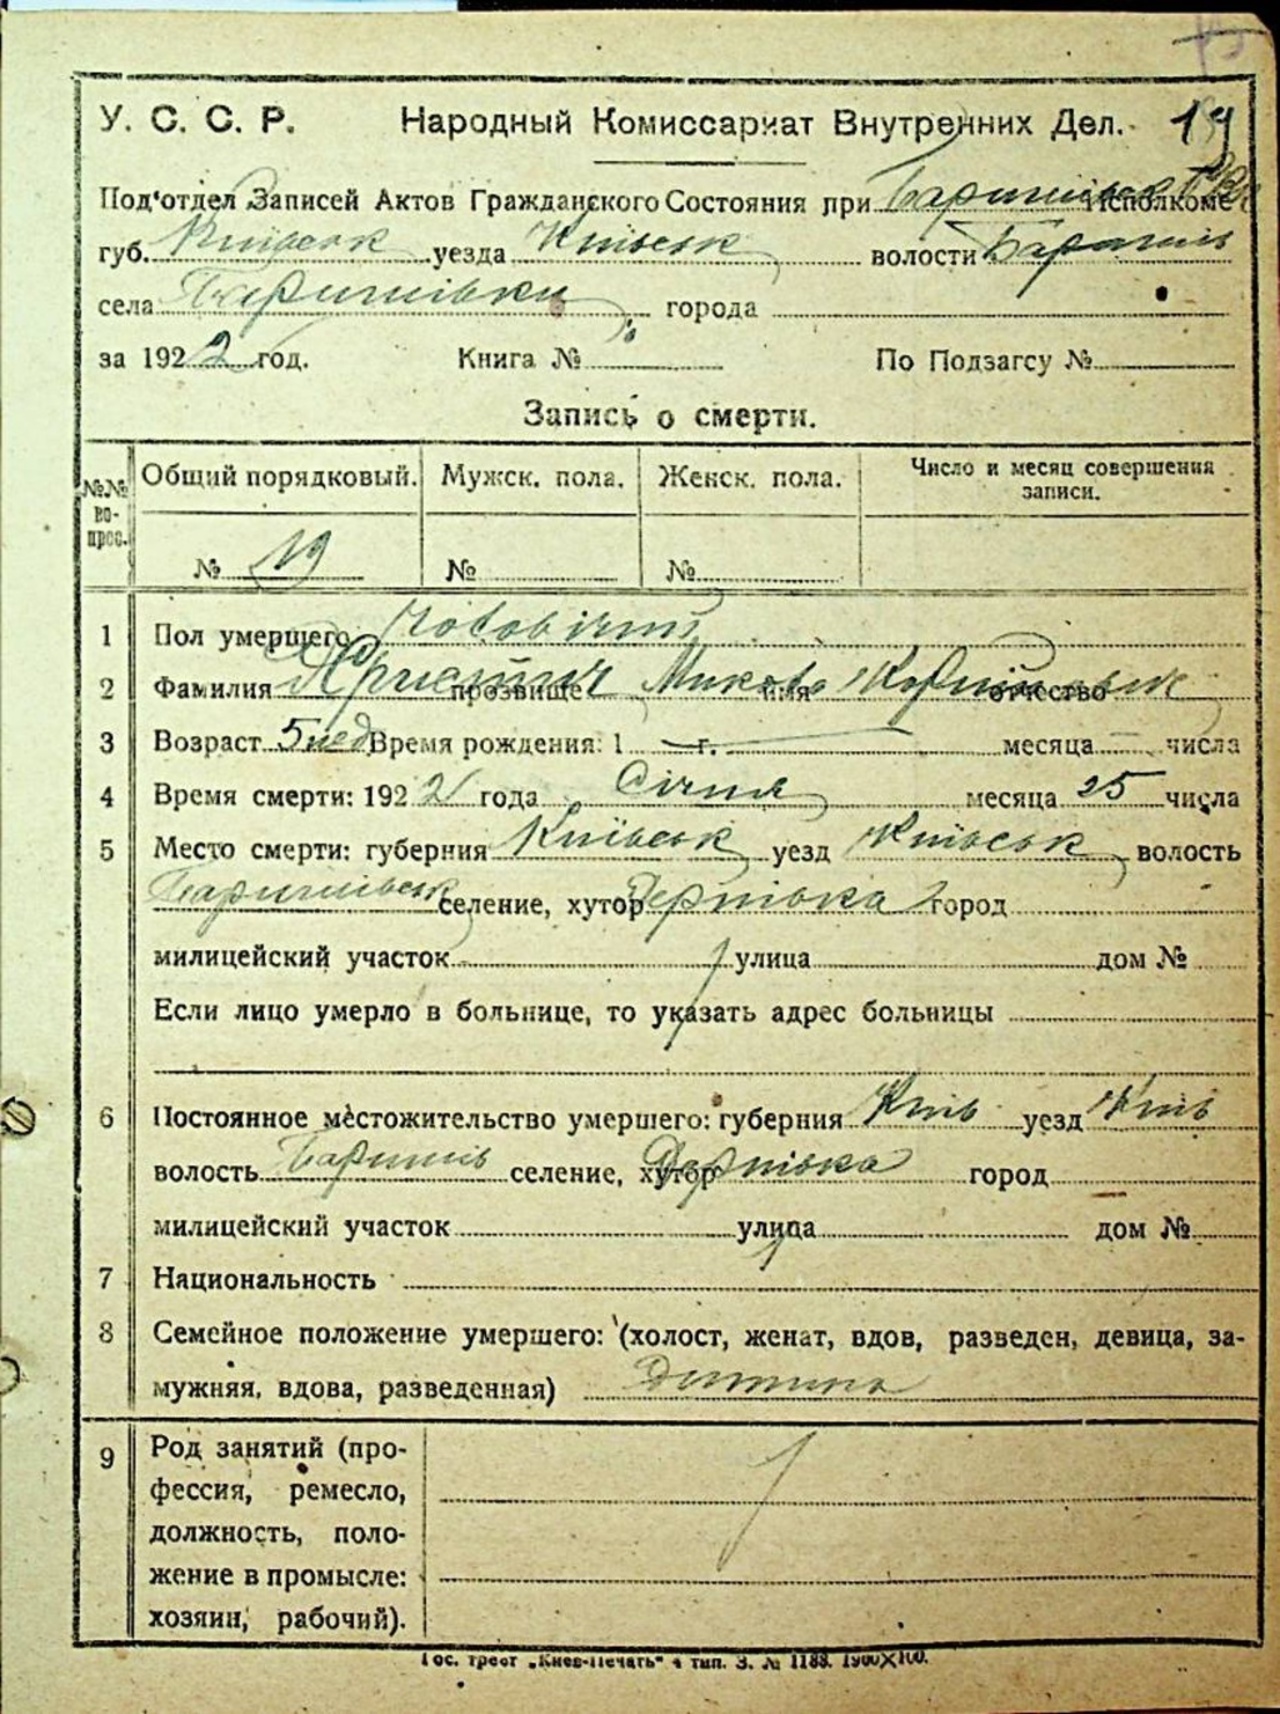 У. С. С. Р. Народный Комиссариат Внутренних Дел. 19
Под'отдел Записей Актов Гражданского Состояния при Баришівськ Исполкоме
губ. Київськ уезда Київськ волости Баришів
села Баришівки города
за 1922 год. Книга № По Подзагсу №
Запись о смерти.
№№ вопрос. Общий порядковый. Мужск. пола. Женск. пола. Число и месяц совершения записи.
№ 19 № №
1 Пол умершего Чоловічий
2 Фамилия прозвище Микола имя отчество
3 Возраст 5 нед Время рождения: 1 г. месяца числа
4 Время смерти: 1922 года Січня месяца 25 числа
5 Место смерти: губерния Київськ уезд Київськ волость
Баришівськ селение, хутор город
милицейский участок улица дом №
Если лицо умерло в больнице, то указать адрес больницы
6 Постоянное местожительство умершего: губерния Київ уезд Київ
волость Баришів селение, хутор город
милицейский участок улица дом №
7 Национальность
8 Семейное положение умершего: (холост, женат, вдов, разведен, девица, за-
мужняя, вдова, разведенная) Дитина
9 Род занятий (про-
фессия, ремесло,
должность, поло-
жение в промысле:
хозяин, рабочий).
Гос. трест „Киев-Печать“ 4 тип. З. № 1188. 1900X100.